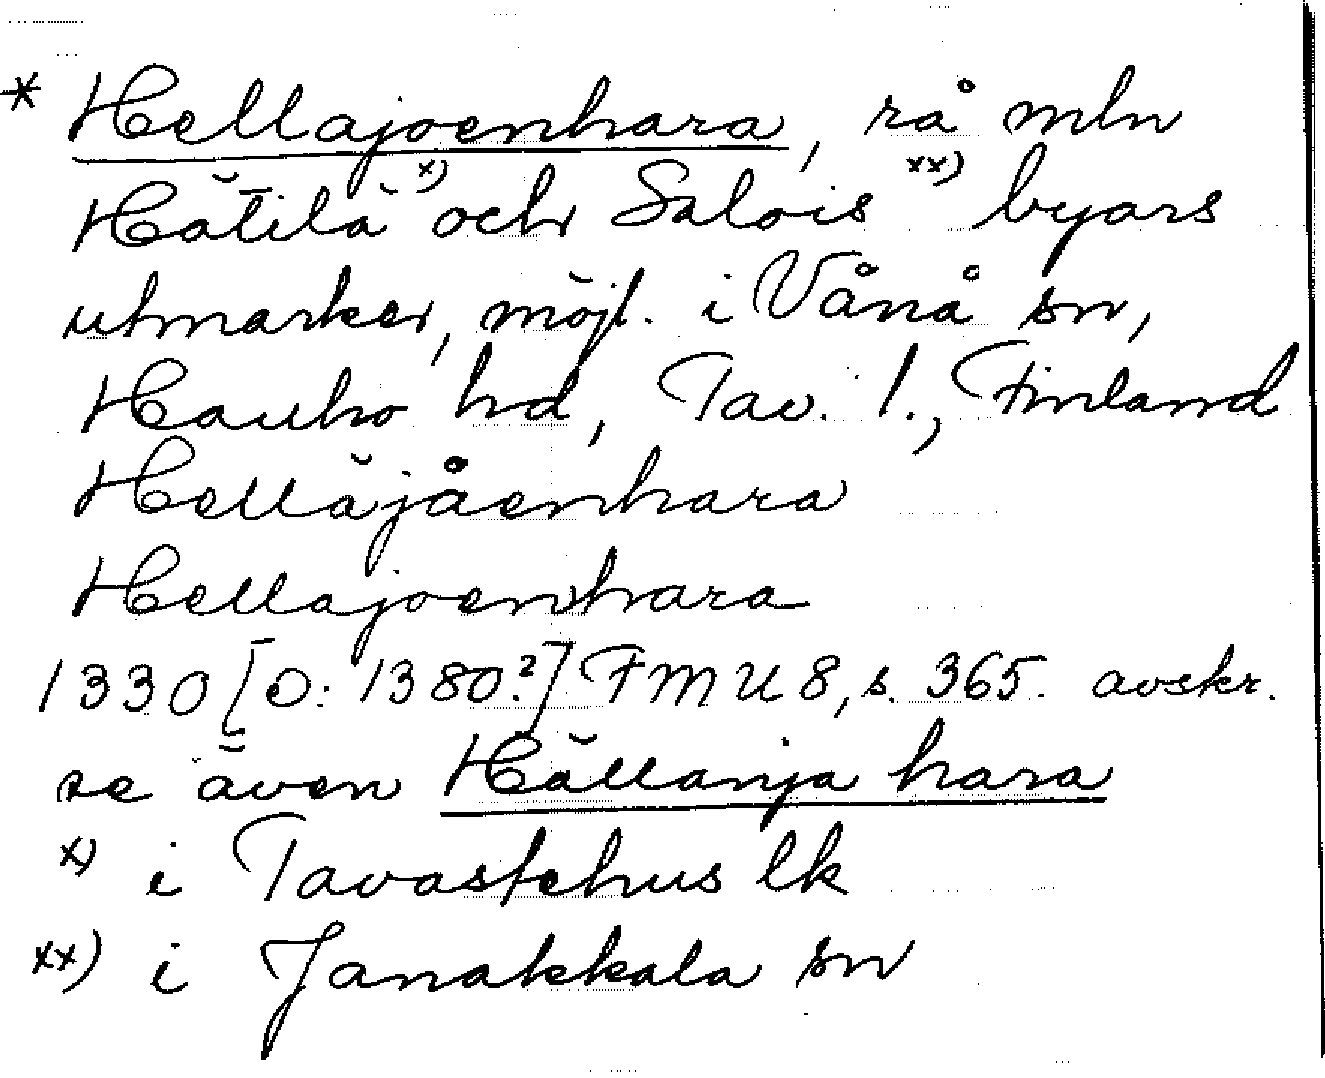 * Hellajoenhara, rå mln
Hätilä x) och Salois xx) byars
utmarker, möjl. i Vånå sn,
Hauho hd, Tav. l., Finland
Helläjåenhara
Hellajoenhara
1330 [o: 1380?] FMU 8, s. 365. avskr.
se även Hällanja hara
x) i Tavastehus lk
xx) i Janakkala sn